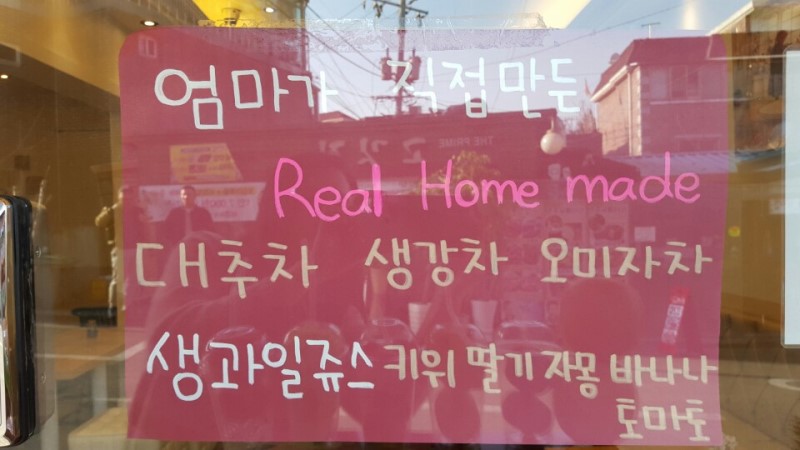 엄마가 직접만든
Real Home made
대추차 생강차 오미자차
생과일쥬스 키위 딸기 자몽 바나나
토마토
THE PRIME